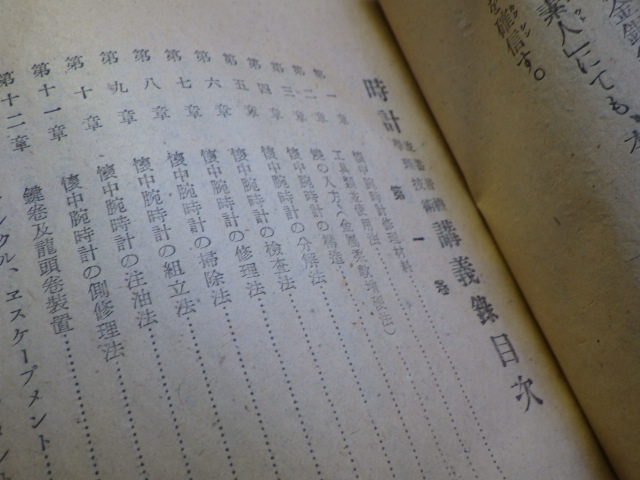 金
素人」にても、
を確信す。
時計 講義錄目次
第一卷
第一章 懷中腕時計修理材料
第二章 工具類及使用法
第三章 の入方(金屬柔軟增强法)
第四章 の構造
第五章 懷中腕時計の分解法
第六章 懷中腕時計の檢査法
第七章 懷中腕時計の修理法
第八章 懷中腕時計の掃除法
第九章 懷中腕時計の組立法
第十章 懷中腕時計の注油法
第十一章 懷中腕時計の側修理法
第十二章 鍵卷及龍頭卷裝置
クル、ヱスケープメント